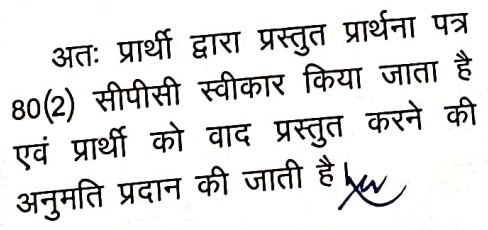 अतः प्रार्थी द्वारा प्रस्तुत प्रार्थना पत्र
80(2) सीपीसी स्वीकार किया जाता है
एवं प्रार्थी को वाद प्रस्तुत करने की
अनुमति प्रदान की जाती है।